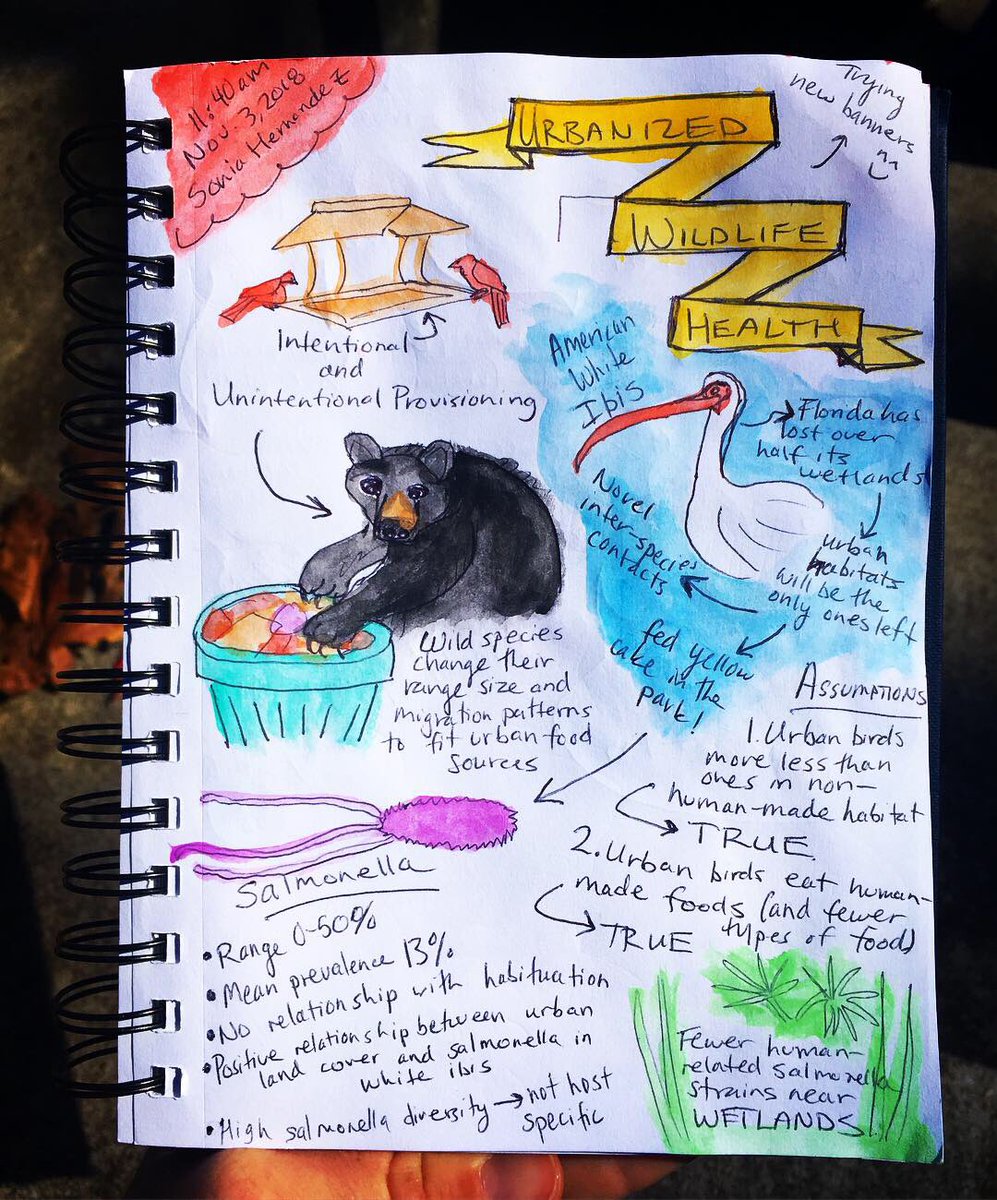 11:40am
Nov. 3, 2018
Sonia Hernandez
Trying
new banners
URBANIZED
WILDLIFE
HEALTH
Intentional
and
Unintentional Provisioning
American
White
Ibis
Florida has
lost over
half its
wetlands
urban
habitats
will be the
only ones left
Novel
inter-species
contacts
fed yellow
cake in the
park!
Wild species
change their
range size and
migration patterns
to fit urban food
sources
ASSUMATIONS
1. Urban birds
more less than
ones in non-
human-made habitat
TRUE
2. Urban birds eat human-
made foods (and fewer
types of food)
TRUE
Salmonella
• Range 0-50%
• Mean prevalence 13%
• No relationship with habituation
• Positive relationship between urban
land cover and salmonella in
white ibis
• High salmonella diversity → not host
specific
Fewer human-
related salmonella
strains near
WETLANDS